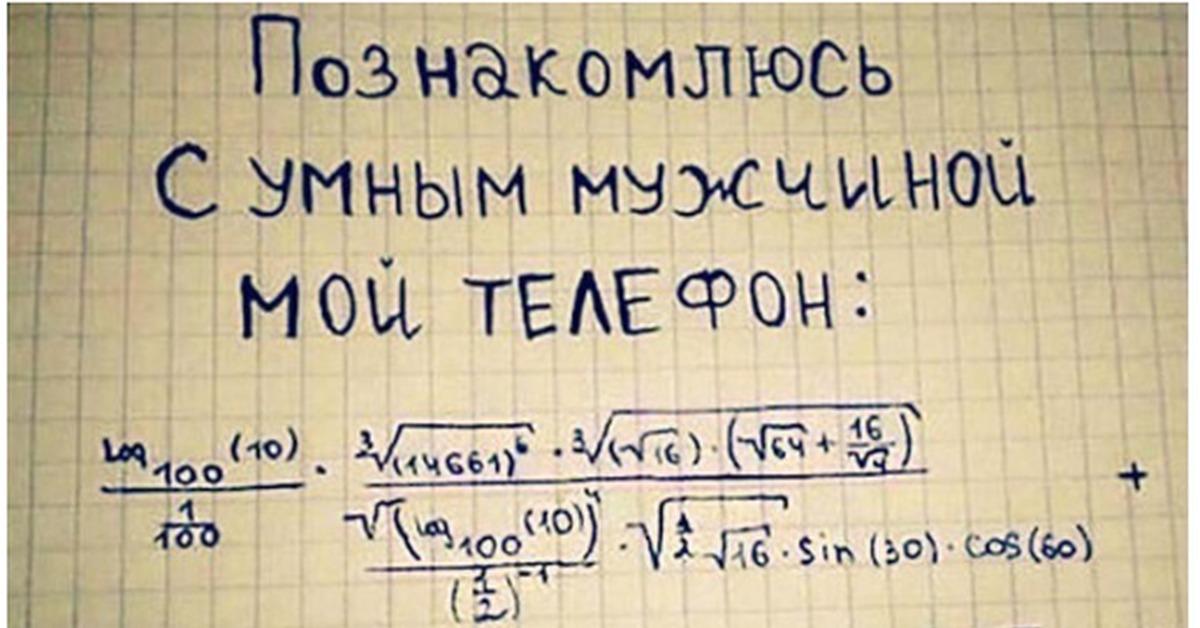 Познакомлюсь
С умным мужчиной
мой телефон:
log₁₀₀(10) / (1/100) · ∛(14661)⁶ · ∛((√16) · (√64 + 16/√4)) / (√(log₁₀₀(10))⁴ / (1/2)⁻¹ · √(1/2 √16) · sin(30) · cos(60)) +